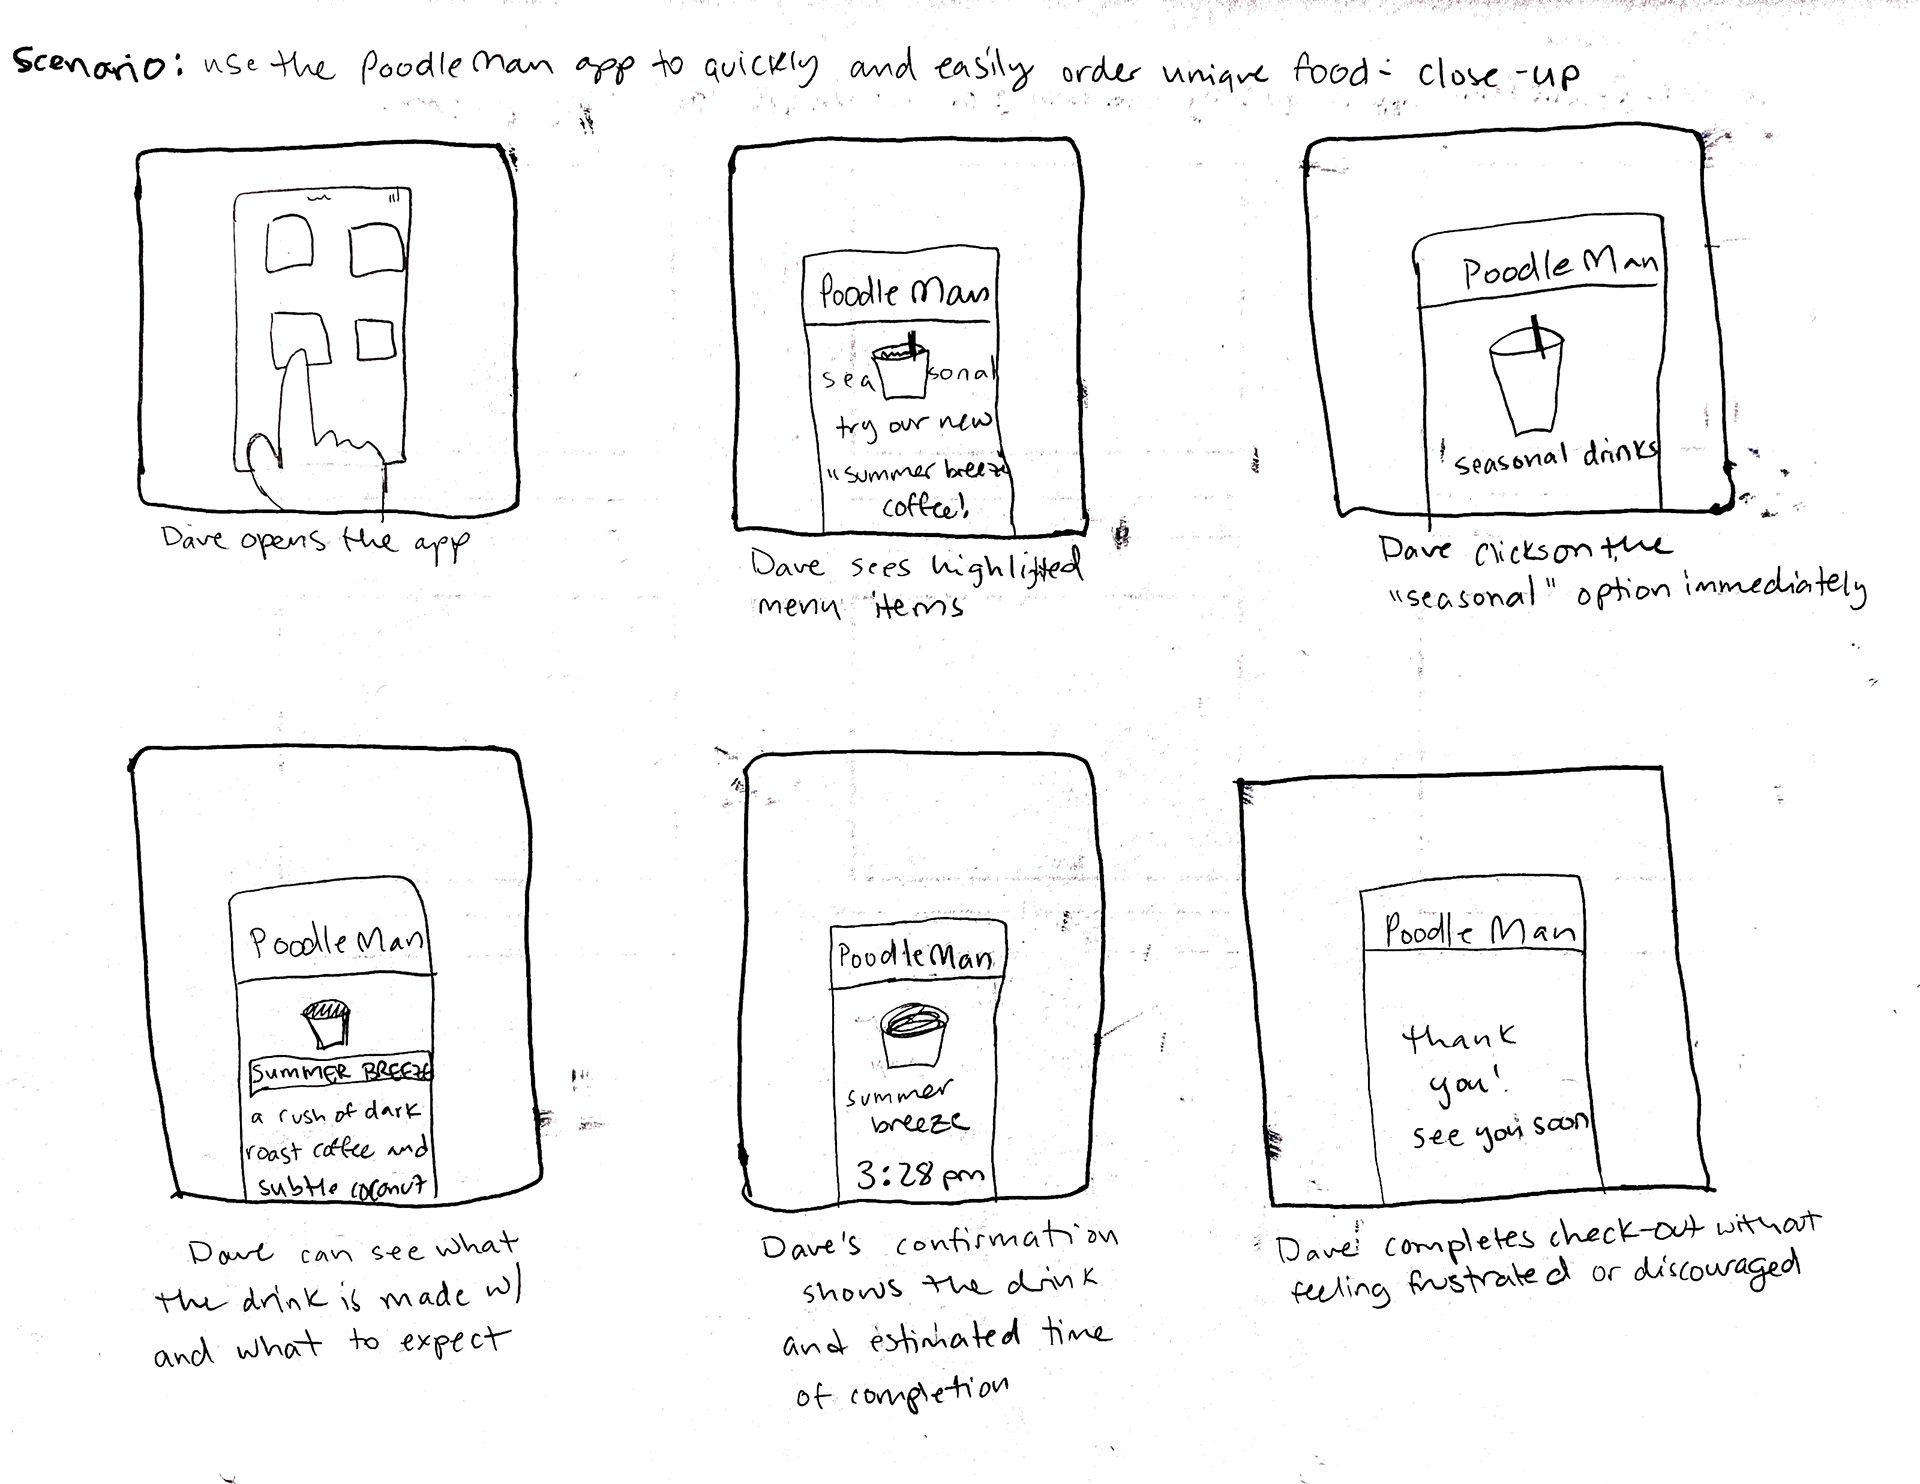 Scenario: use the PoodleMan app to quickly and easily order unique food - close-up
Dave opens the app
Poodle Man
seasonal
try our new
"summer breeze
coffee!
Dave sees highlighted
menu items
Poodle Man
seasonal drinks
Dave clicks on the
"seasonal" option immediately
Poodle Man
SUMMER BREEZE
a rush of dark
roast coffee and
subtle coconut
Dave can see what
the drink is made w/
and what to expect
PoodleMan
summer
breeze
3:28 pm
Dave's confirmation
shows the drink
and estimated time
of completion
Poodle Man
thank
you!
see you soon
Dave completes check-out without
feeling frustrated or discouraged